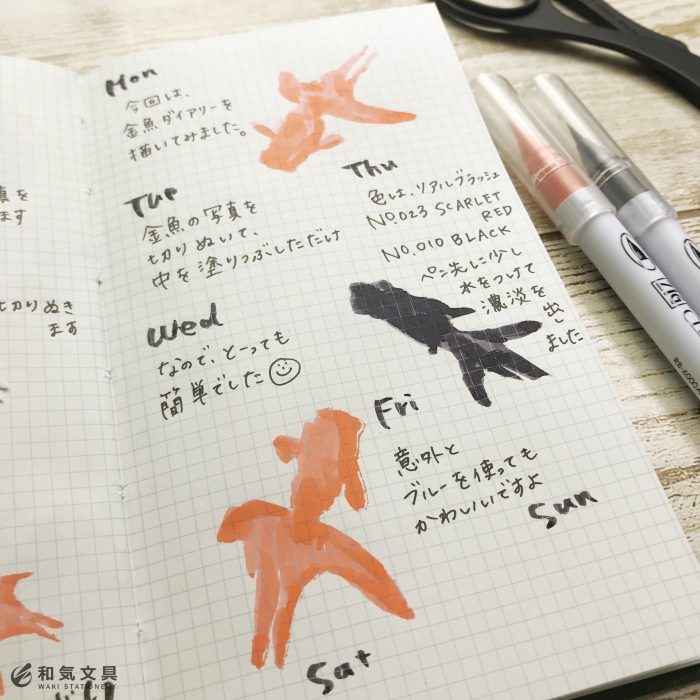 Mon
今回は、
金魚ダイアリーを
描いてみました。
Tue
金魚の写真を
切りぬいて、
中を塗りつぶしただけ
Wed
なので、とーっても
簡単でした
Thu
色は、リアルブラッシュ
No.023 SCARLET
RED
No.010 BLACK
ペン先に少し
水をつけて
濃淡を出
しました
Fri
意外と
ブルーを使っても
かわいいですよ
Sat
Sun
真を
ます
切りぬき
ます
RB-6000A
和気文具
WAKI STATIONERY